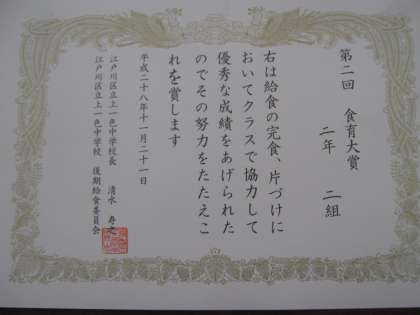 第二回　食育大賞
二年　二組
右は給食の完食、片づけに
おいてクラスで協力して
優秀な成績をあげられた
のでその努力をたたえこ
れを賞します
平成二十八年十一月二十一日
江戸川区立上一色中学校長　清水　寿之
江戸川区立上一色中学校　後期給食委員会